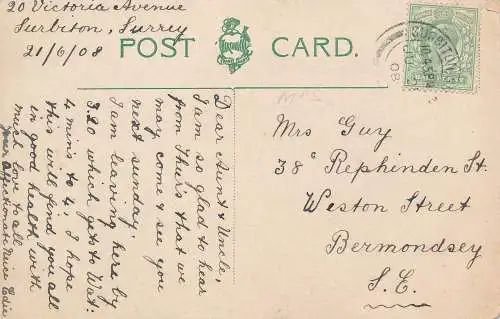 20 Victoria Avenue
Surbiton, Surrey
21/6/08
POST CARD.
SURBITON
10.45 PM
08
Dear Aunt & Uncle,
I am so glad to hear
from Thurs that we
may come & see you
next Sunday.
I am leaving here by
3.20 which gets to Wat:
4 mins to 4. I hope
this will find you all
in good health with
much love to all
your affectionate Niece Edie
Mrs Guy
38ª Rephinden St.
Weston Street
Bermondsey
S.E.